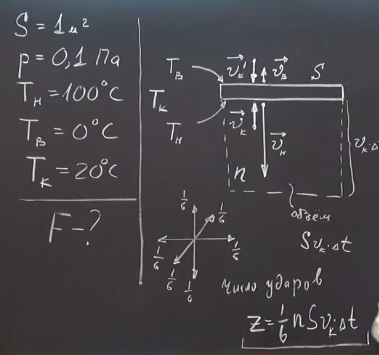 S = 1 м²
p = 0,1 Па
Tн = 100°C
Tв = 0°C
Tк = 20°C
F – ?
Tв
v⃗к'
v⃗в
S
Tк
Tн
v⃗к
v⃗н
vк·Δt
n
объем
Svк·Δt
1/6
1/6
1/6
1/6
1/6
1/6
число ударов
z = 1/6 nSvк·Δt